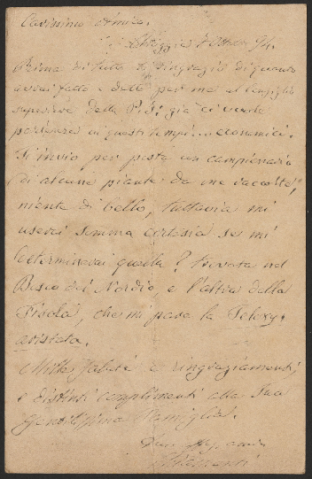 Carissimo Amico.
Prima di tutto Ti ringrazio di quanto
avrai fatto e detto per me al Consiglio
superiore della P. I.: già ci vuole
pazienza in questi tempi economici.
Ti invio per posta un campionario
di alcune piante da me raccolte,
niente di bello, tuttavia mi
userai somma cortesia se mi
determinerai quella ? trovata nel
Bosco del Nordio, e l'altra della
che mi pare la
aristata.
Mille saluti e ringraziamenti,
e distinti complimenti alla Sua
Gentilissima Famiglia.
Tuo